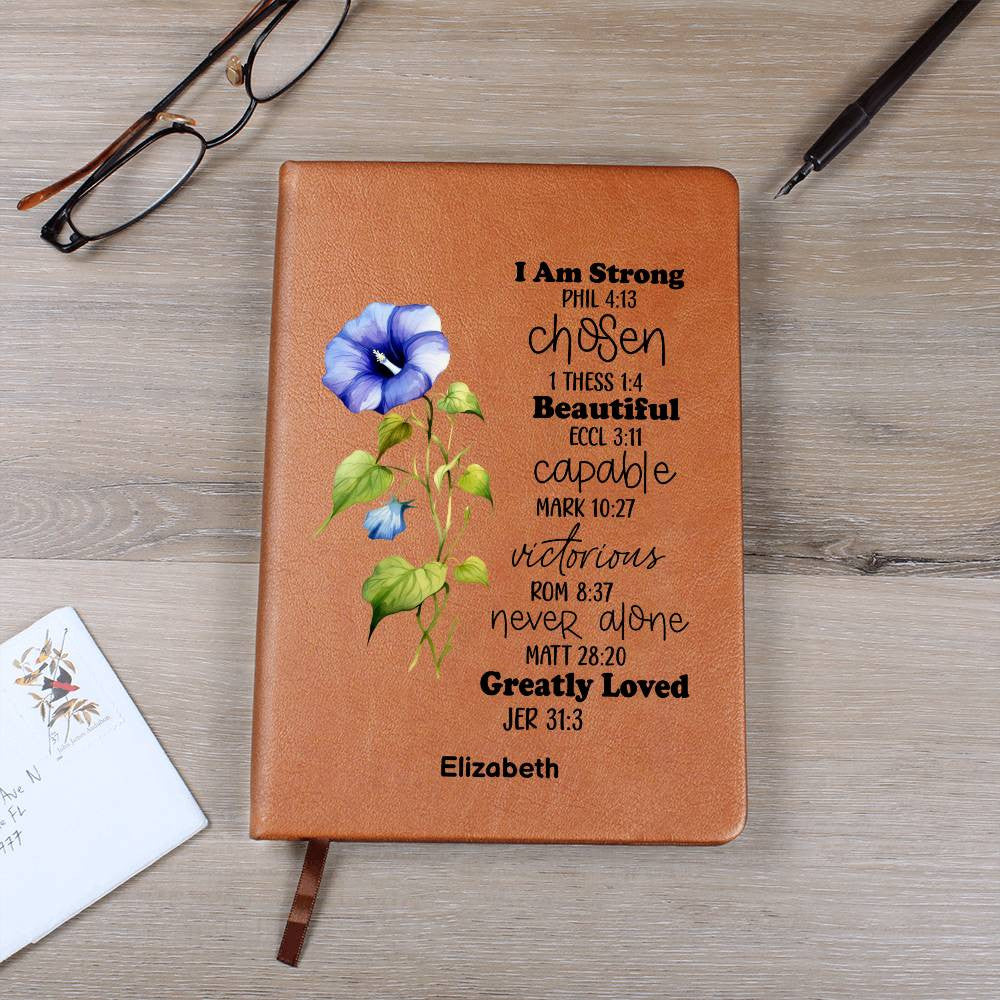 I Am Strong
PHIL 4:13
chosen
1 THESS 1:4
Beautiful
ECCL 3:11
capable
MARK 10:27
victorious
ROM 8:37
never alone
MATT 28:20
Greatly Loved
JER 31:3
Elizabeth
John James Audubon
Ave N
FL